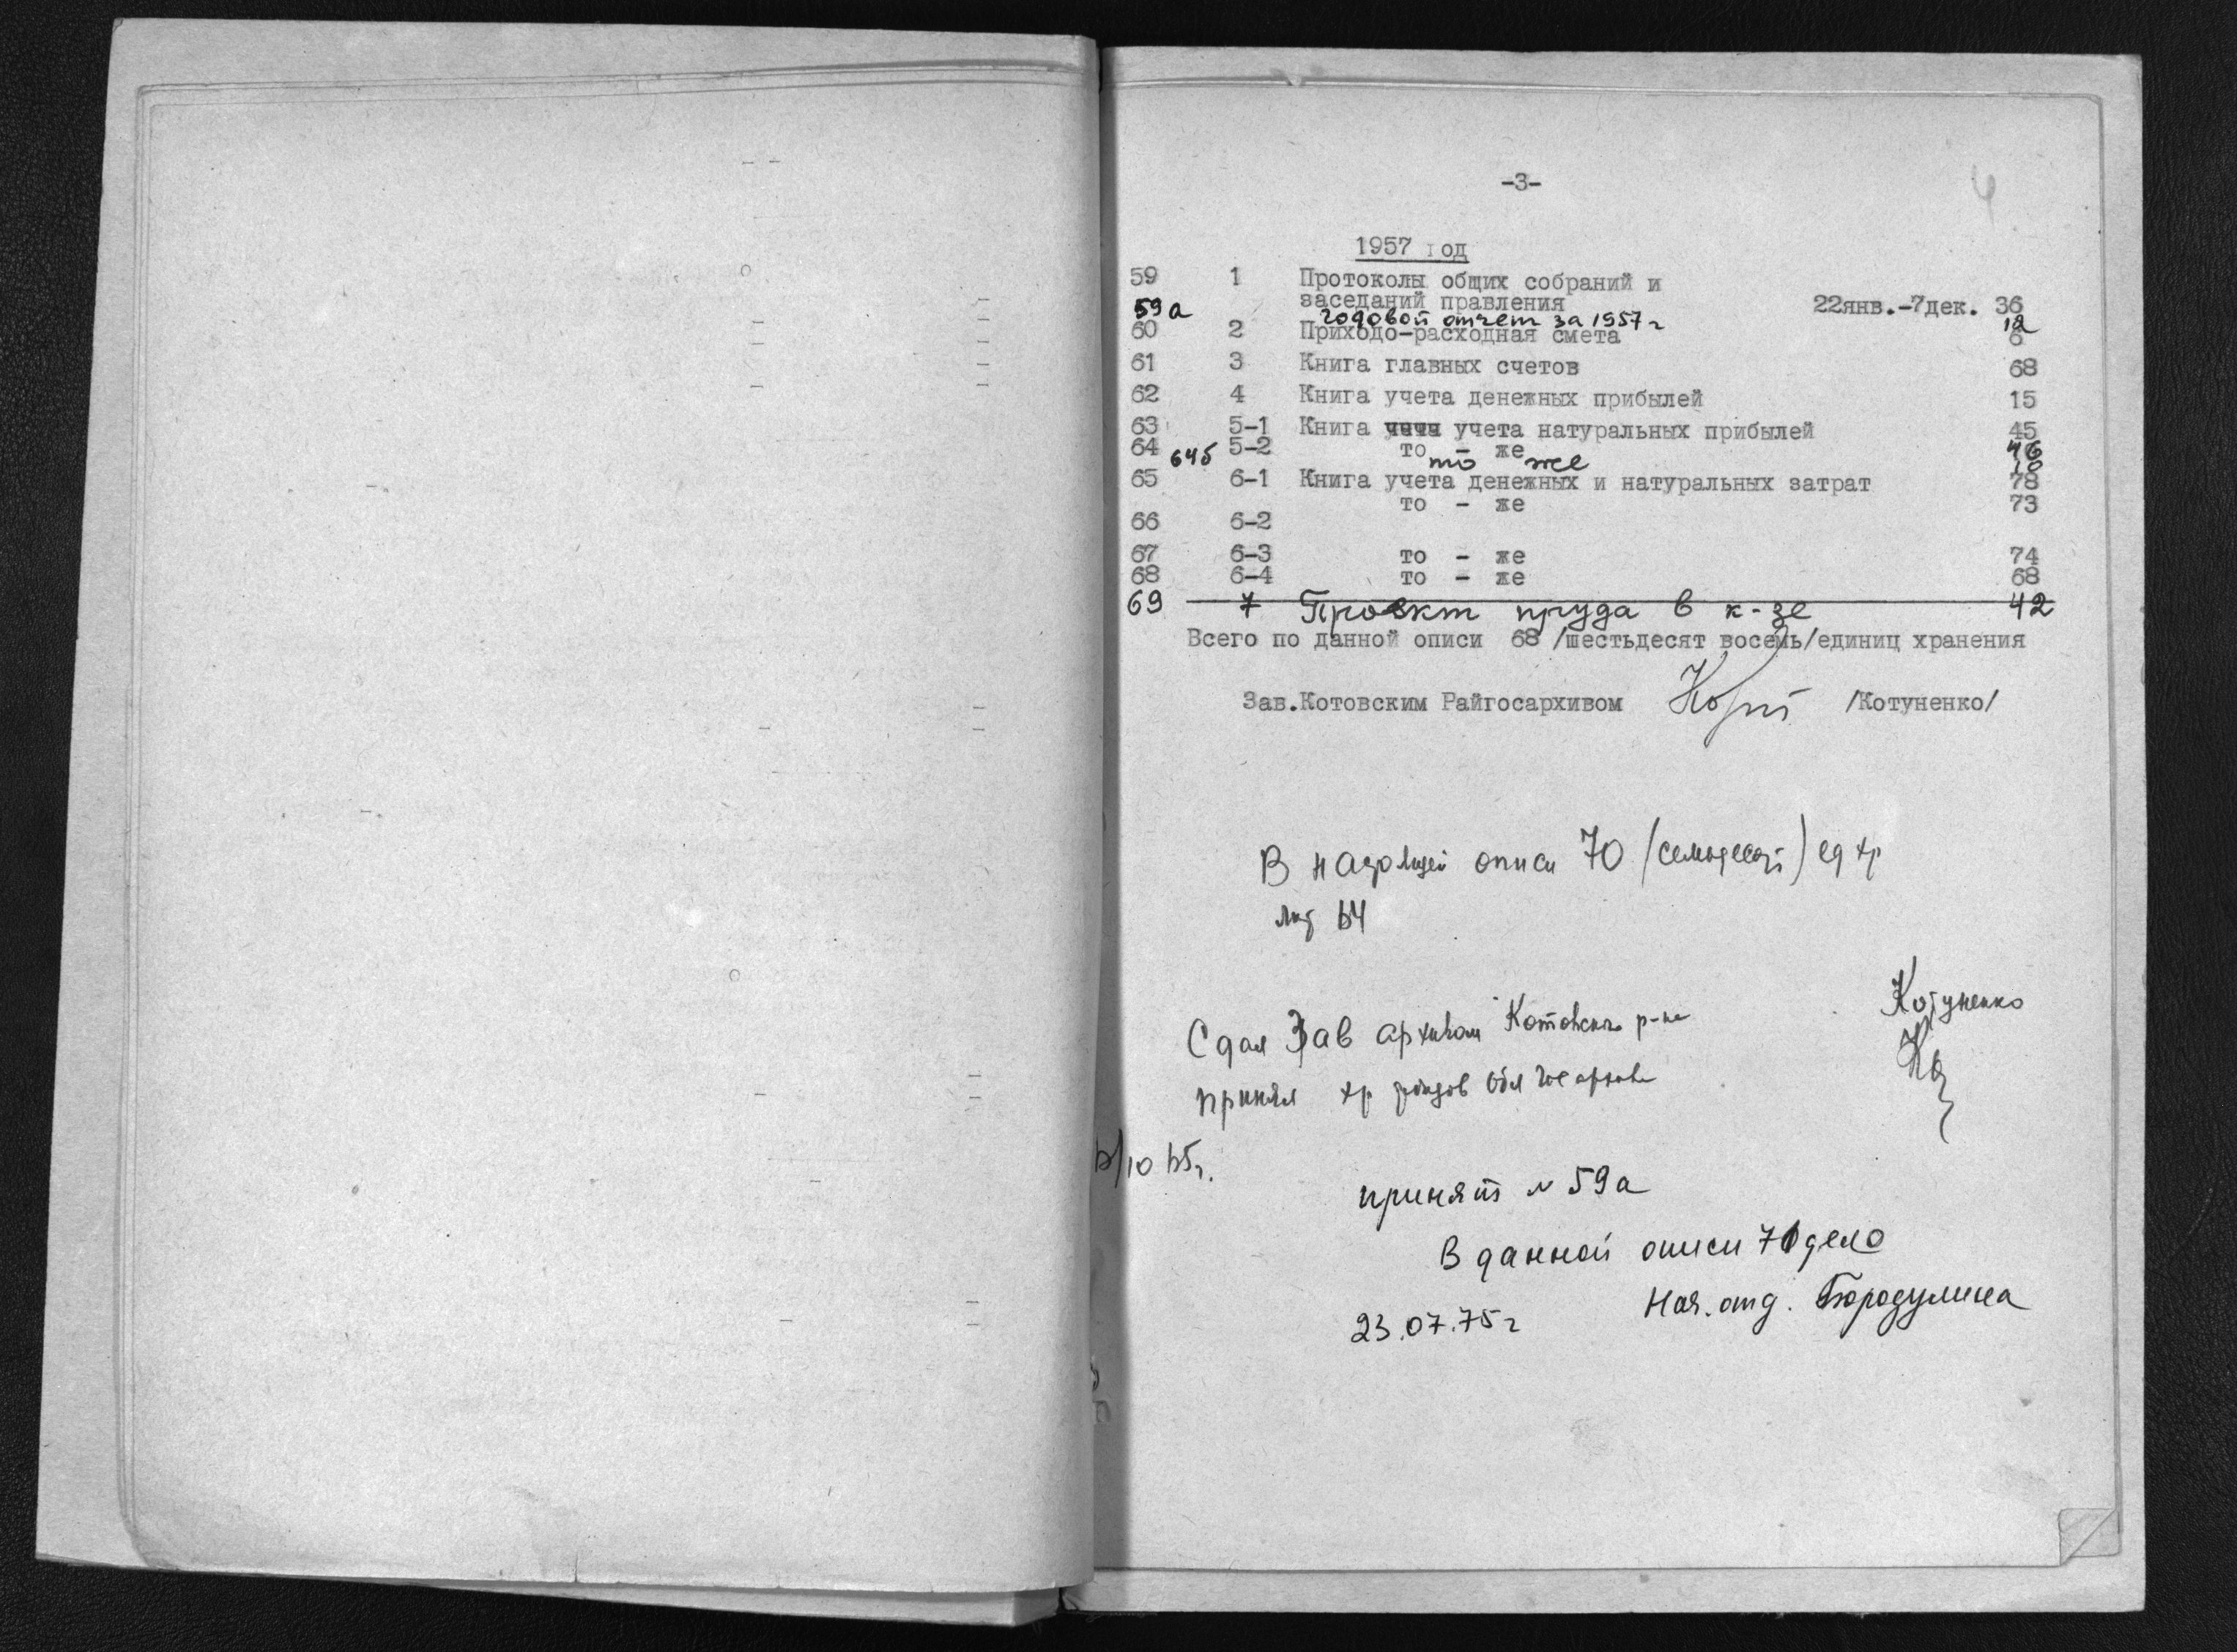 -3-
4
1957 год
59 1 Протоколы общих собраний и
заседаний правления 22янв.-7дек. 36
59а годовой отчет за 1957 г 12
60 2 Приходо-расходная смета 6
61 3 Книга главных счетов 68
62 4 Книга учета денежных прибылей 15
63 5-1 Книга учета натуральных прибылей 45
64 5-2 то - же 46
64б то же 10
65 6-1 Книга учета денежных и натуральных затрат 78
66 6-2 то - же 73
67 6-3 то - же 74
68 6-4 то - же 68
69 7 Проект пруда в к-зе 42
Всего по данной описи 68 /шестьдесят восемь/единиц хранения
Зав.Котовским Райгосархивом /Котуненко/
В настоящей описи 70 (семьдесят) ед хр
лит 64
Сдал Зав архивом Котовского р-на Котуненко
принял хр фондов Обл Госархива
/10 65г.
принят № 59а
В данной описи 71 дело
23.07.75 г Нач. отд. Бородулина